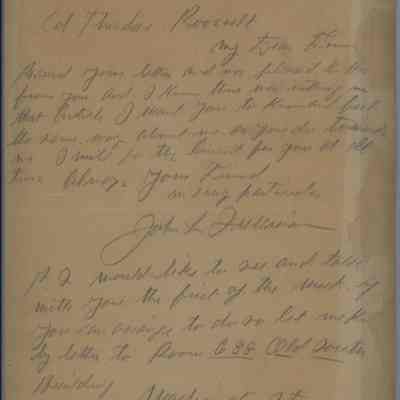 Col Theodore Roosevelt
My Dear Friend
Received your letter and was pleased to hear
from you and I know there was nothing in
that article I want you to know that I feel
the same way about me as you do towards
me I will be the best for you at all
time Always Your Friend
in every particular
John L Sullivan
P.S. I would like to see and talk
with you the first of the week if
you can arrange to do so let me know
by letter to Room 688 Old South
Building